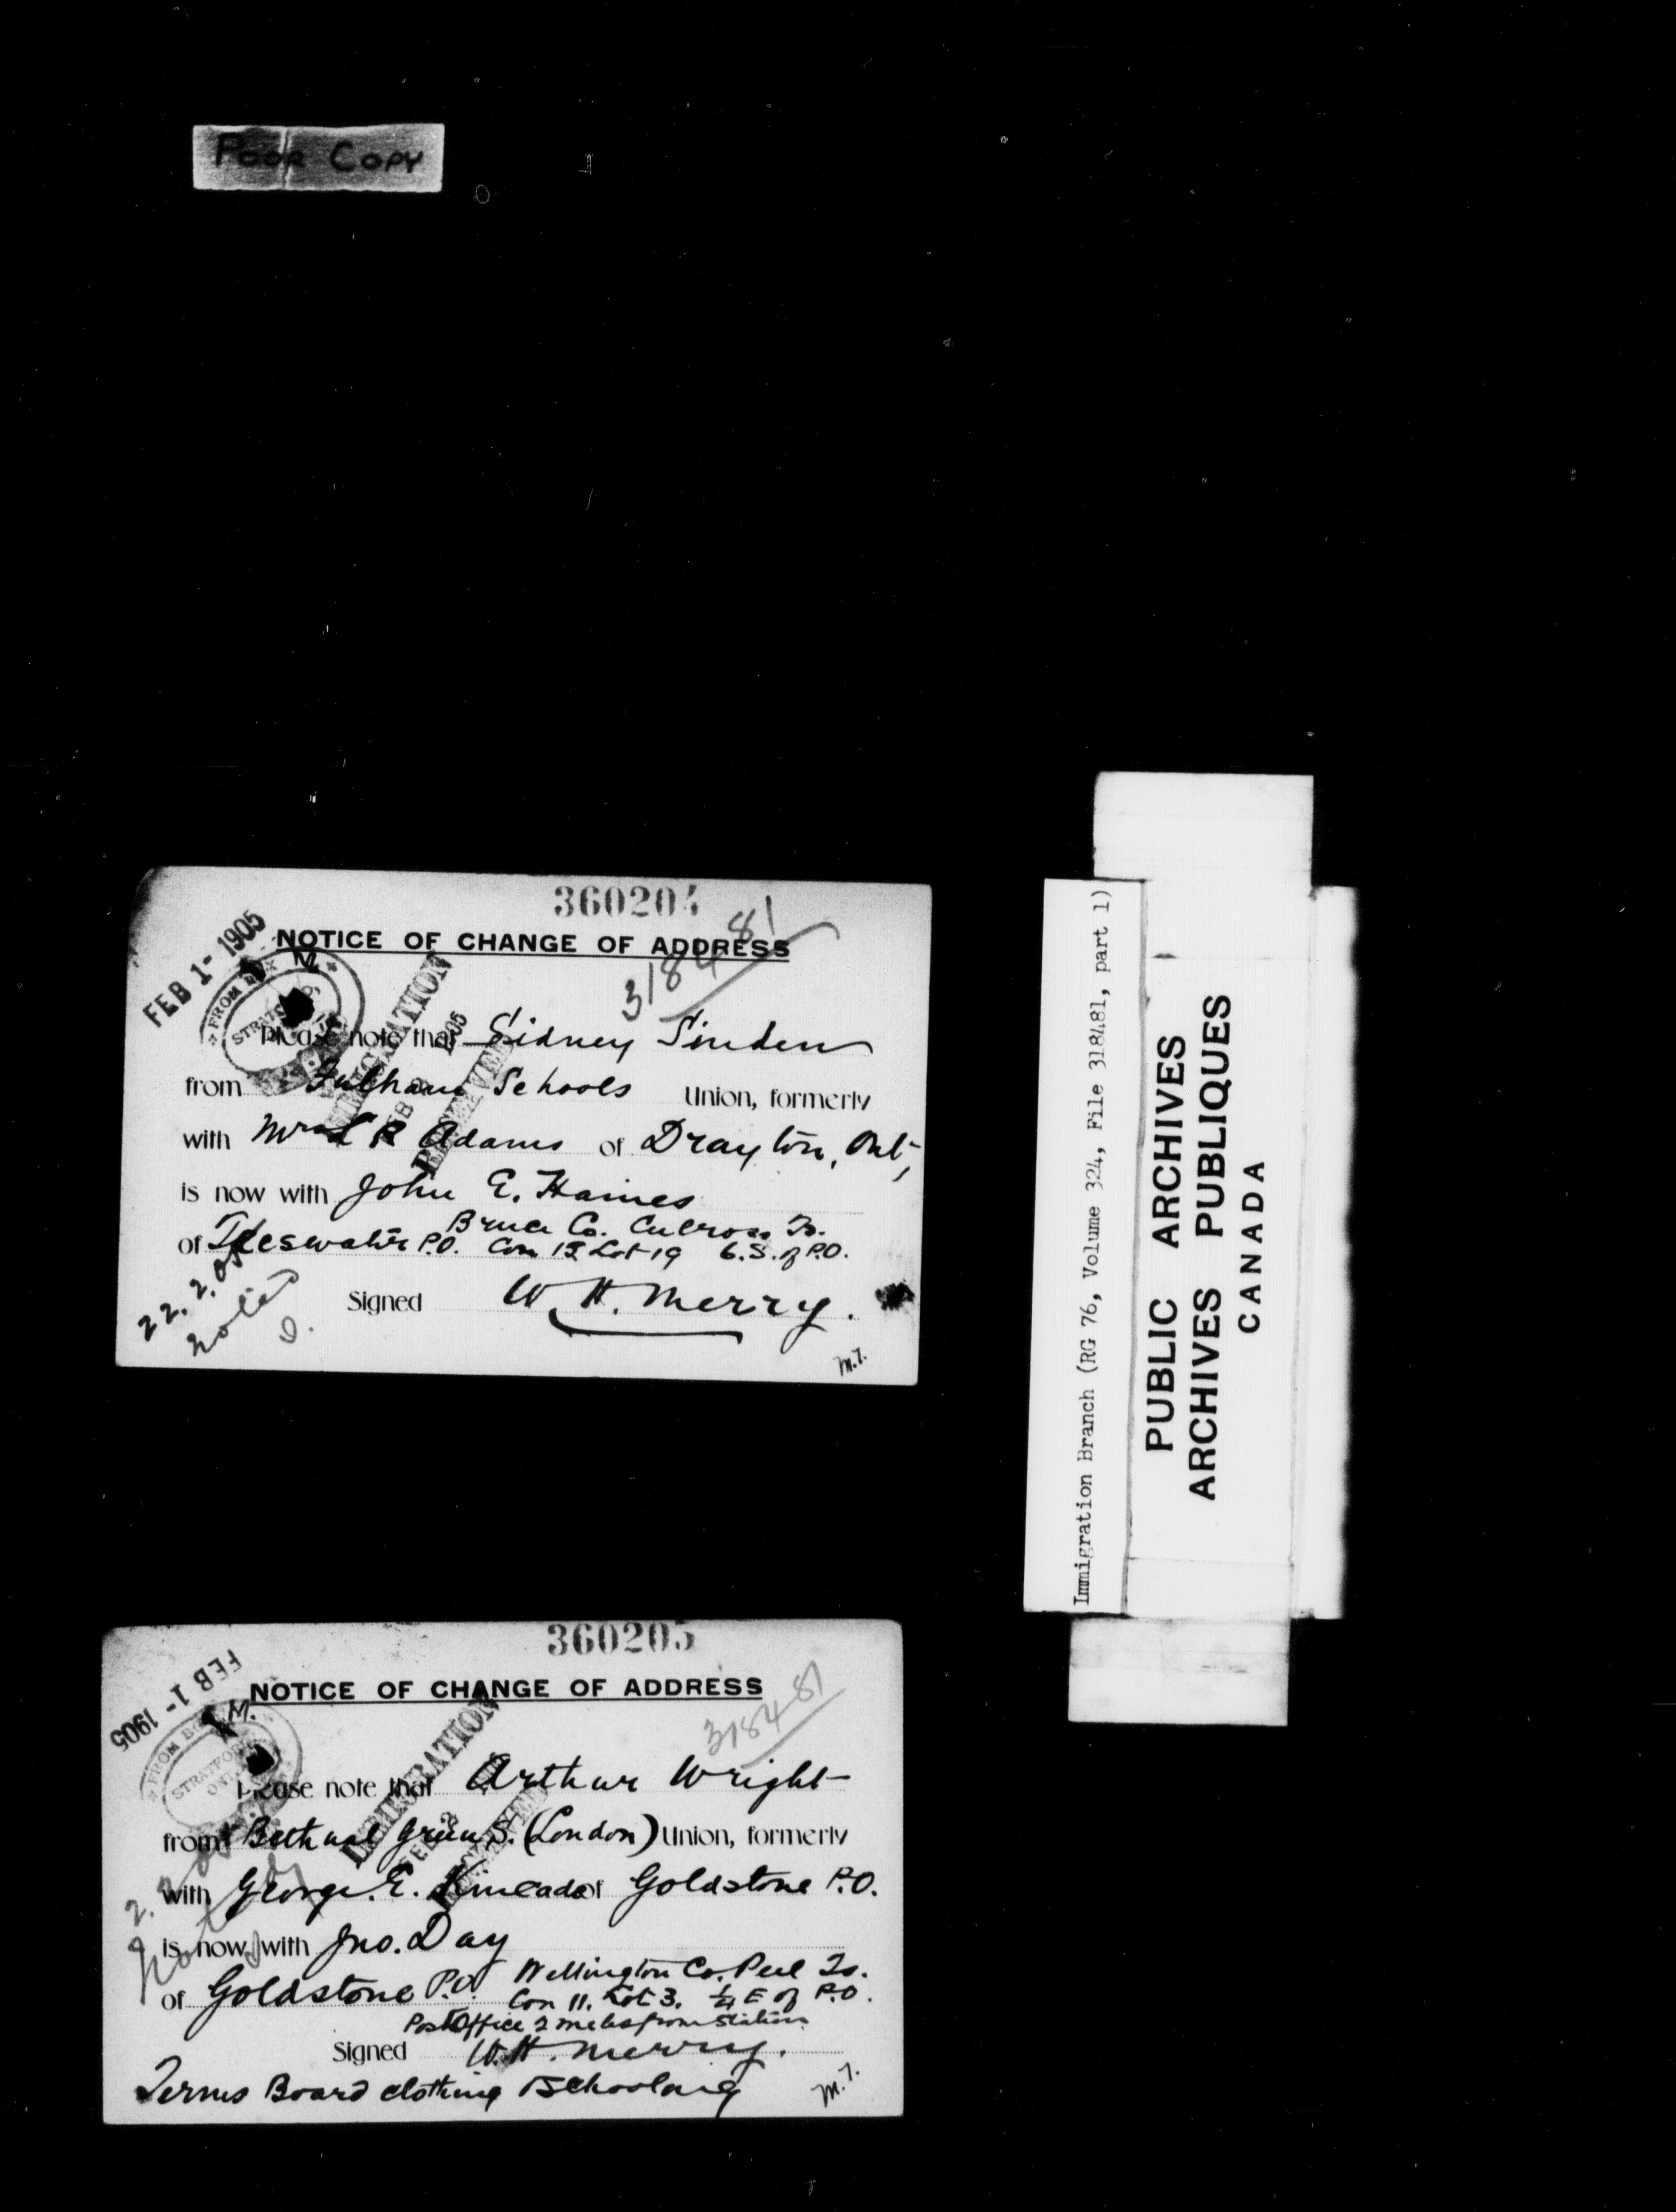 POOR COPY
360204
318481
FEB 1 - 1905
NOTICE OF CHANGE OF ADDRESS
FROM BOX
STRATFORD,
IMMIGRATION
FEB 1905
RECEIVED
Please note that Sidney Sinden
from Fulham Schools Union, formerly
with Mrs L R Adams of Drayton, Ont,
is now with John E. Haines
Bruce Co. Culross Ts.
of Teeswater P.O. Con 12 Lot 19 6.S. of P.O.
22.2.05
Noted
Signed W. H. Merry.
M.T.
360205
FEB 1 - 1905
NOTICE OF CHANGE OF ADDRESS
318481
FROM BOX
STRATFORD
ONT.
IMMIGRATION
FEB 2
RECEIVED
Please note that Arthur Wright
from Bethnal Green S. (London) Union, formerly
with George. E. Kincade of Goldstone P.O.
is now with Jno. Day
Wellington Co. Peel Ts.
of Goldstone P.O. Con 11. Lot 3. ¼ E of P.O.
Post Office 2 miles from Station
Signed W. H. Merry.
Terms Board clothing & Schooling
M.T.
Immigration Branch (RG 76, Volume 324, File 318481, part 1)
PUBLIC ARCHIVES
ARCHIVES PUBLIQUES
CANADA